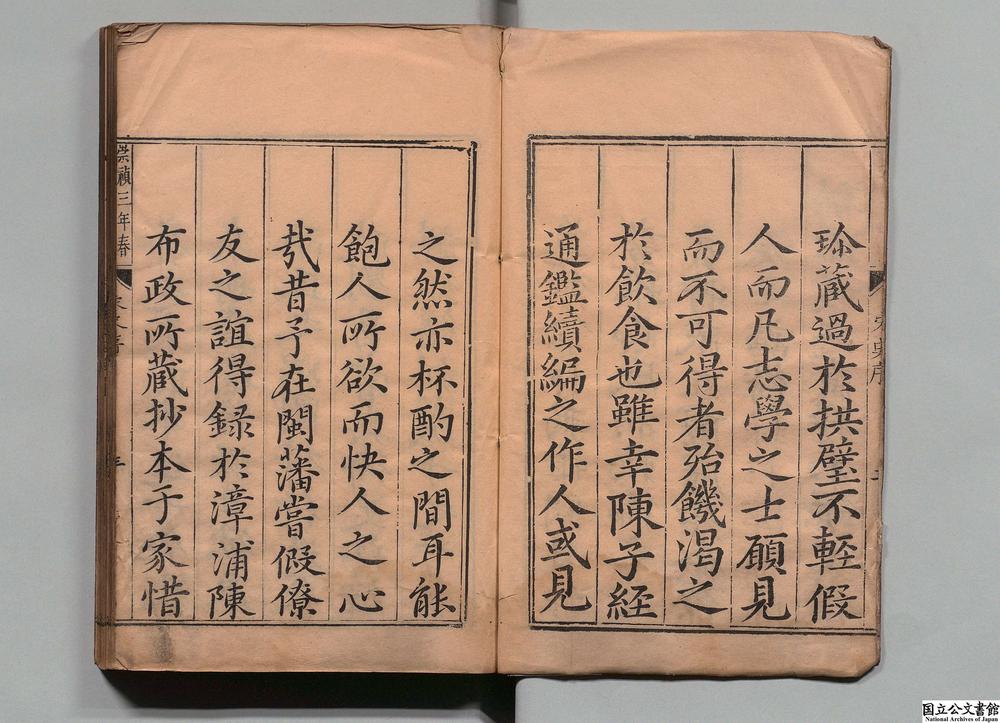 珎藏過於拱璧不輕假
人而凡志學之士願見
而不可得者殆饑渴之
於飲食也雖幸陳子經
通鑑續編之作人或見
之然亦杯酌之間耳能
飽人所欲而快人之心
㢤昔予在閩藩嘗假僚
友之誼得録於漳浦陳
布政所藏抄本于家惜
崇禎三年春
国立公文書館
National Archives of Japan